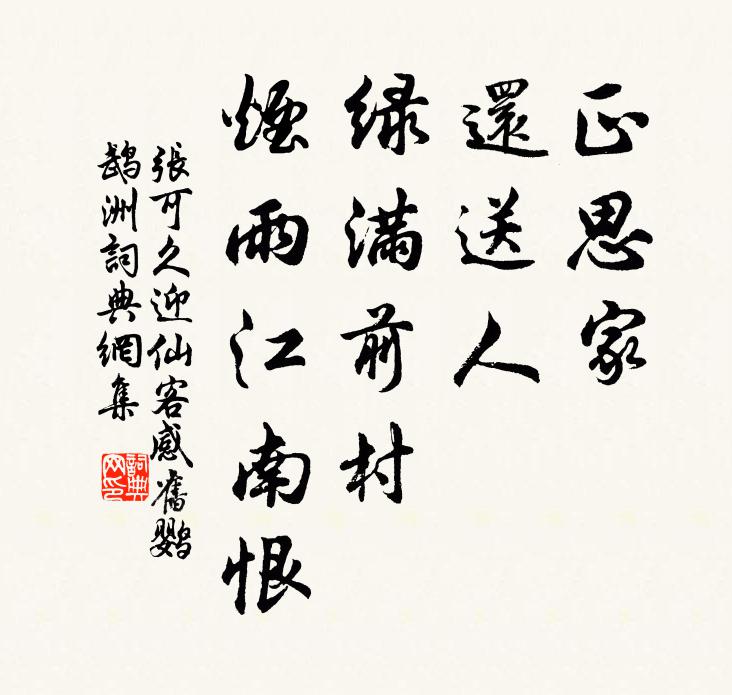 正思家
還送人
綠滿前村
煙雨江南恨
張可久迎仙客感舊鸚
鵡洲詞典網集
詞典
网印